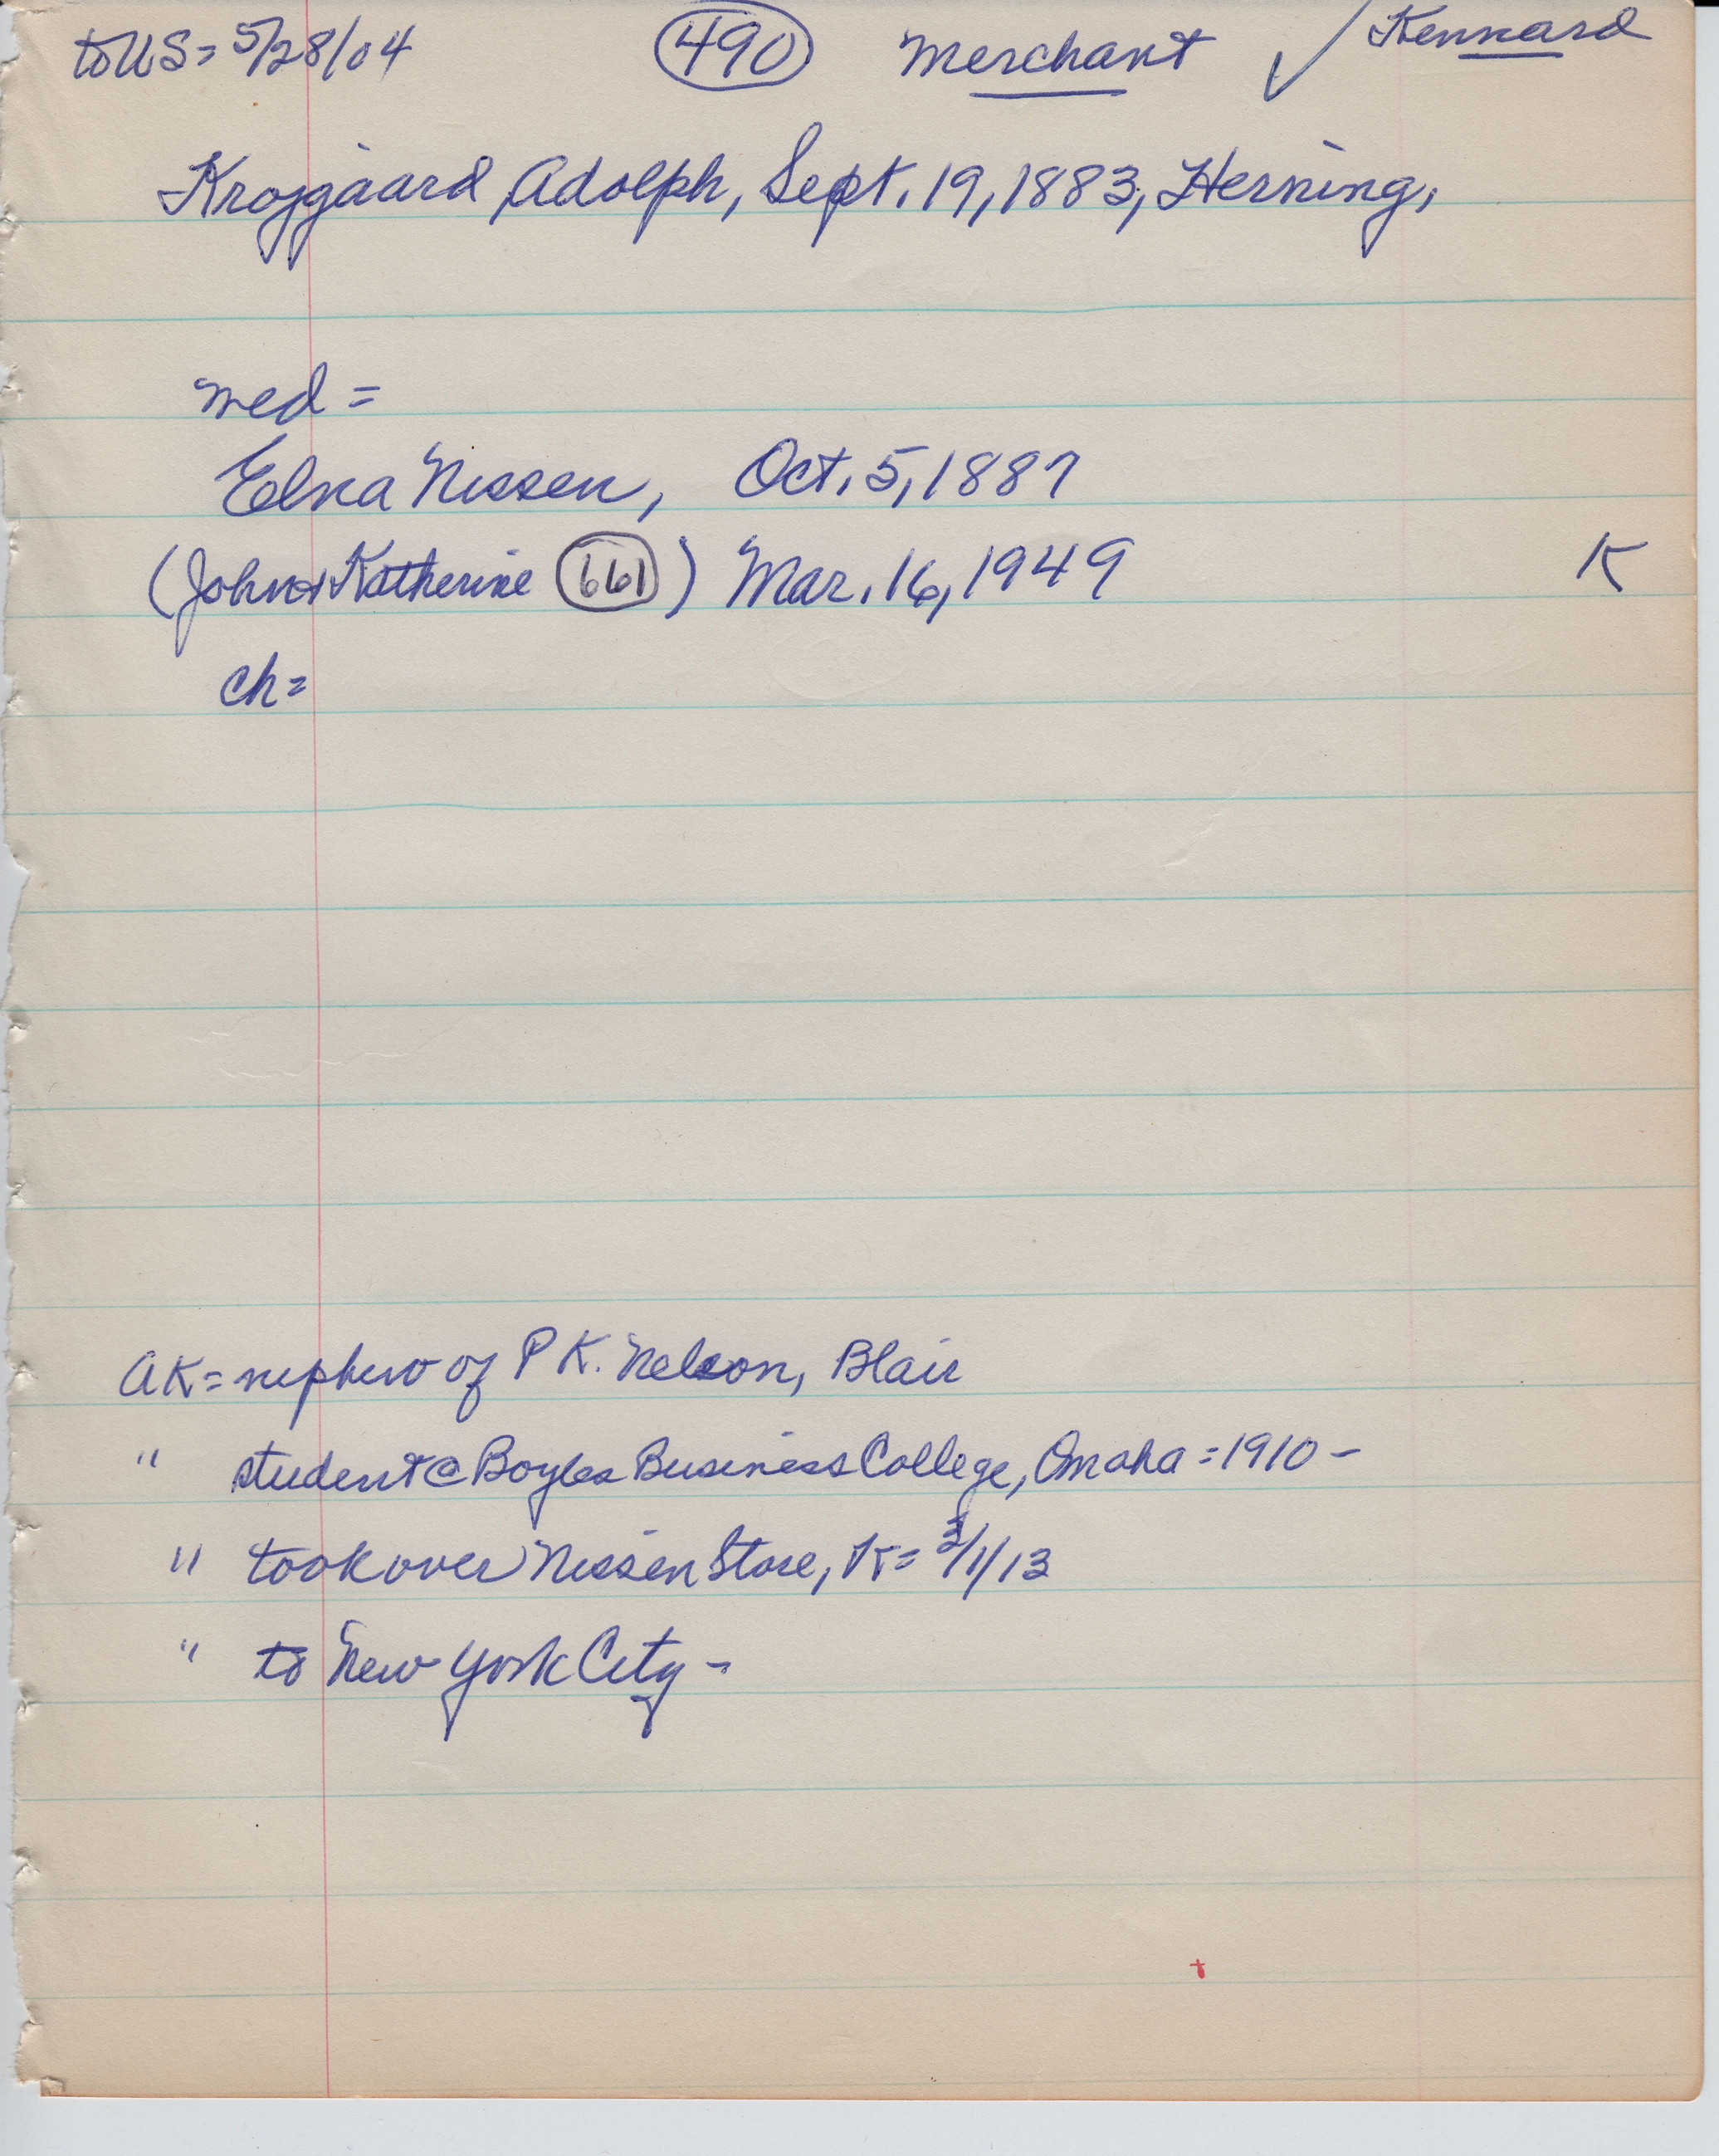 to US = 5/28/04 490 Merchant ✓ Kennard
Krojgaard, Adolph, Sept. 19, 1883, Herning,
med =
Elna Nissen, Oct. 5, 1887
(John & Katherine 661) Mar. 16, 1949 K
ch =
AK = nephew of P K. Nelson, Blair
" student @ Boyles Business College, Omaha = 1910 -
" took over Nissen Store, K = 3/1/13
" to New York City -